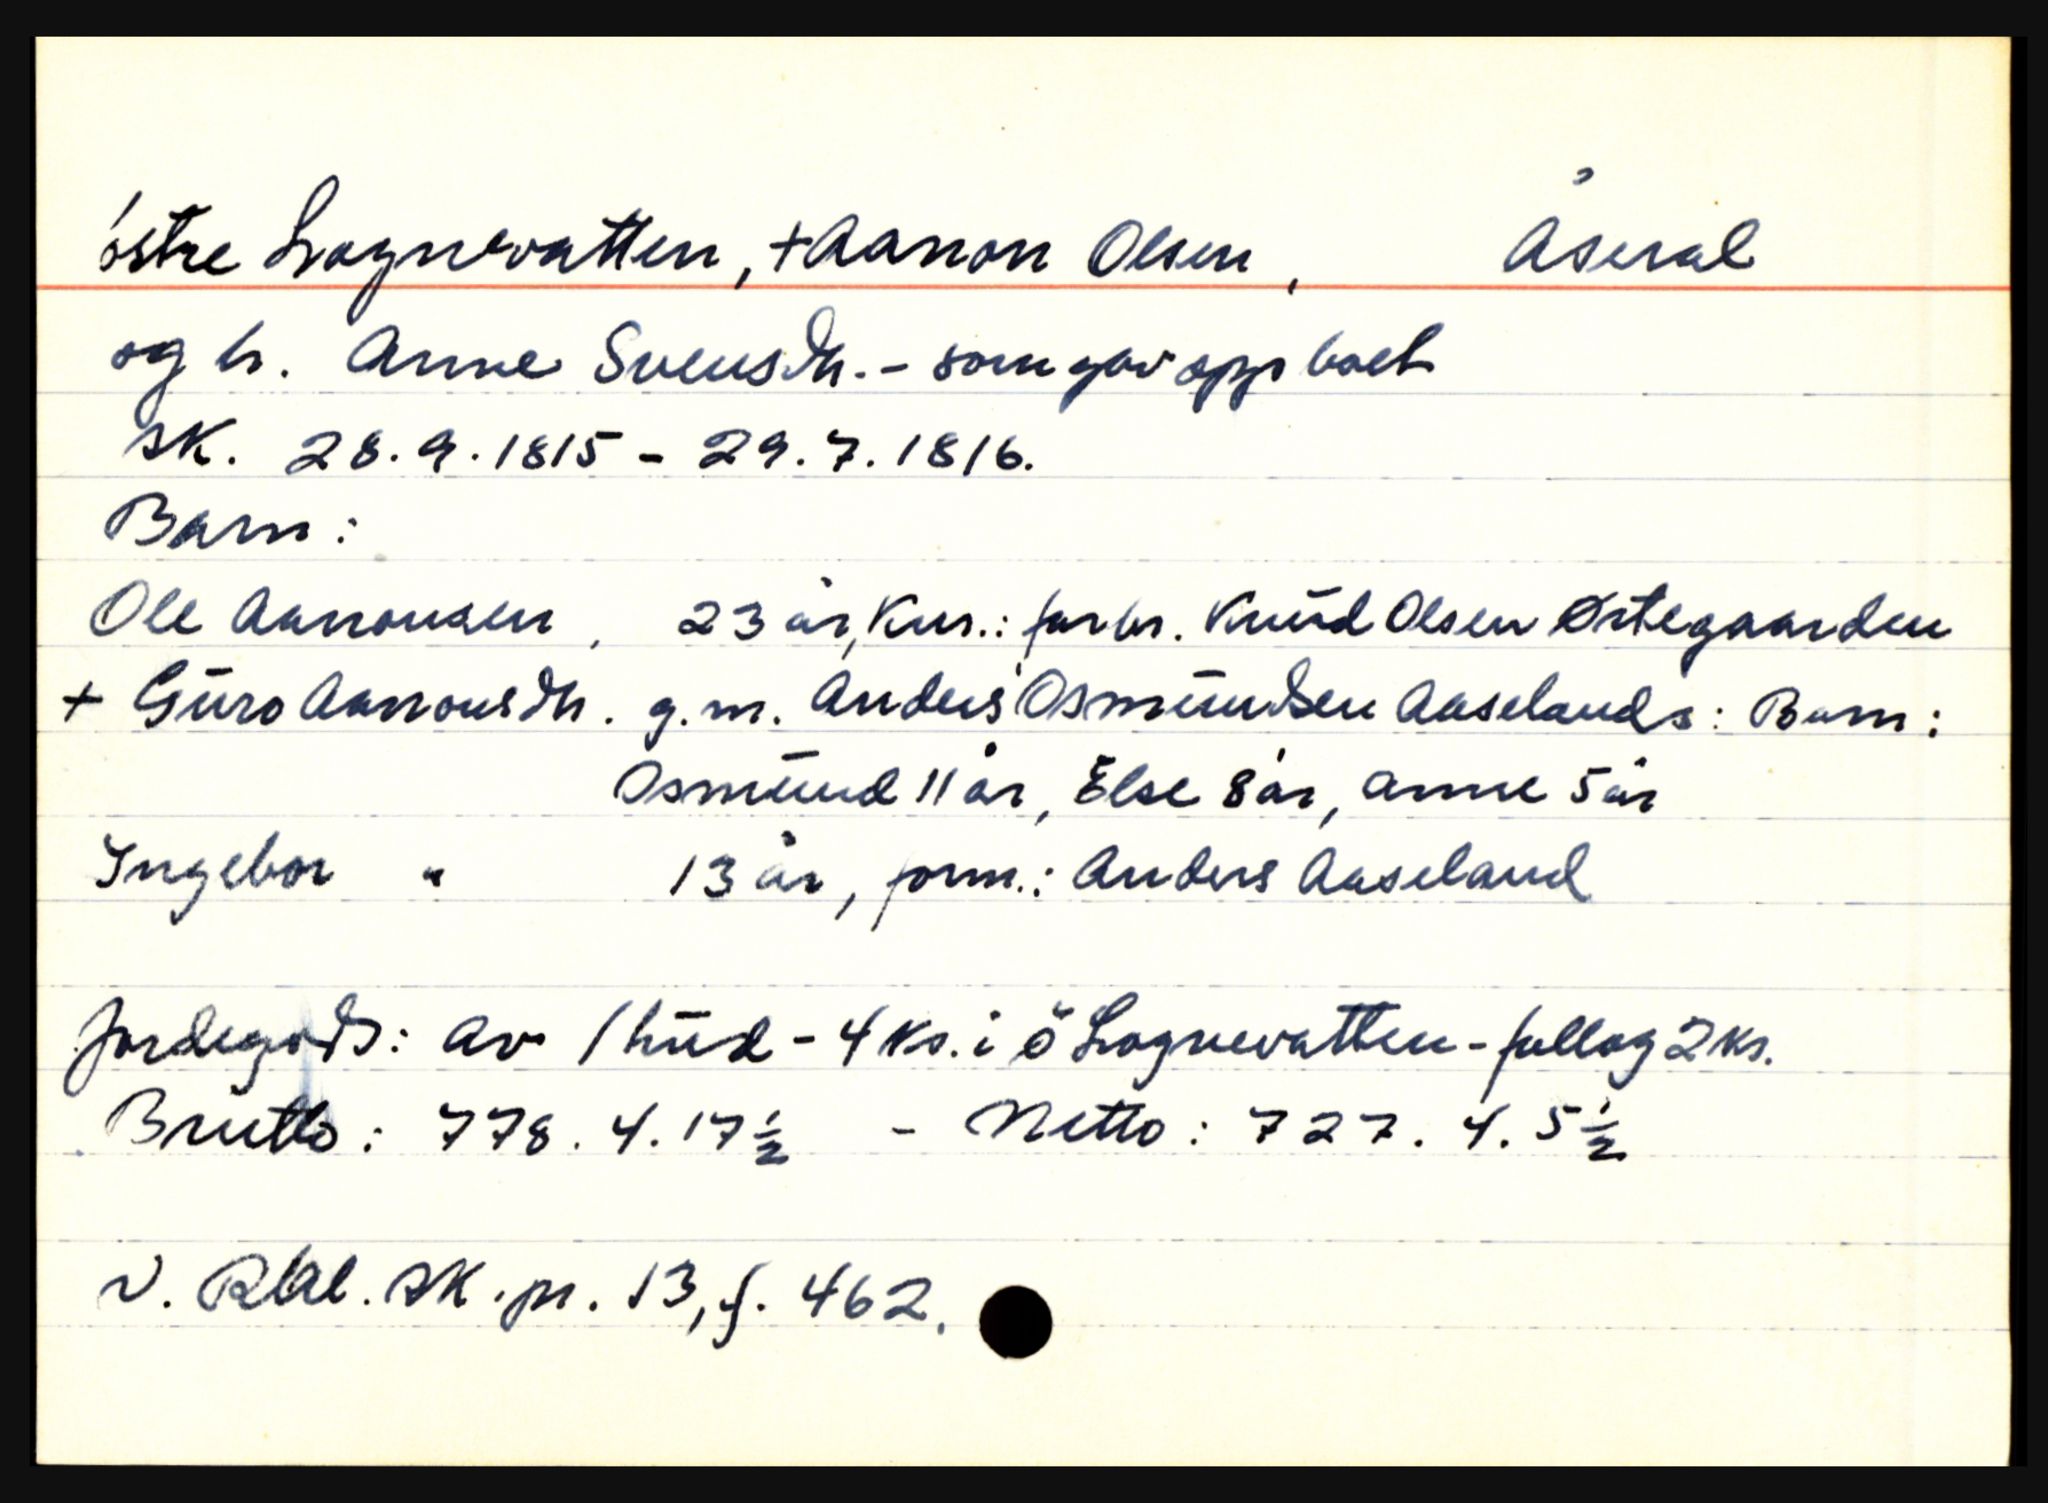 østre Lognevatten, + Aanon Olsen, Åseral
og h. Anne Svensdtr. - som gav opp boet
SK. 28.9.1815 - 29.7.1816.
Barn:
Ole Aanonsen, 23 år, Kur.: farbr. Knud Olsen Østegaarden
+ Guro Aanonsdtr. g.m. Anders Osmundsen Aaselands: Barn:
Osmund 11 år, Else 8 år, Anne 5 år
Ingebor " 13 år, form.: Anders Aaseland
Jordegods: Av 1 hud - 4 ks. i ö Lognevatten - fallog 2 ks.
Brutto: 778. 4. 17½ - Netto: 727. 4. 5½
V. Rbl. SK. pr. 13, f. 462.